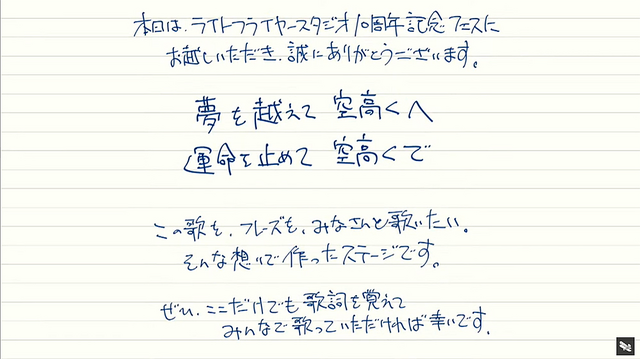 本日は、ライトフライヤースタジオ10周年記念フェスに
お越しいただき、誠にありがとうございます。
夢を越えて 空高くへ
運命を止めて 空高くで
この歌を、フレーズを、みなさんと歌いたい。
そんな想いで作ったステージです。
ぜひ、ここだけでも歌詞を覚えて
みんなで歌っていただければ幸いです。